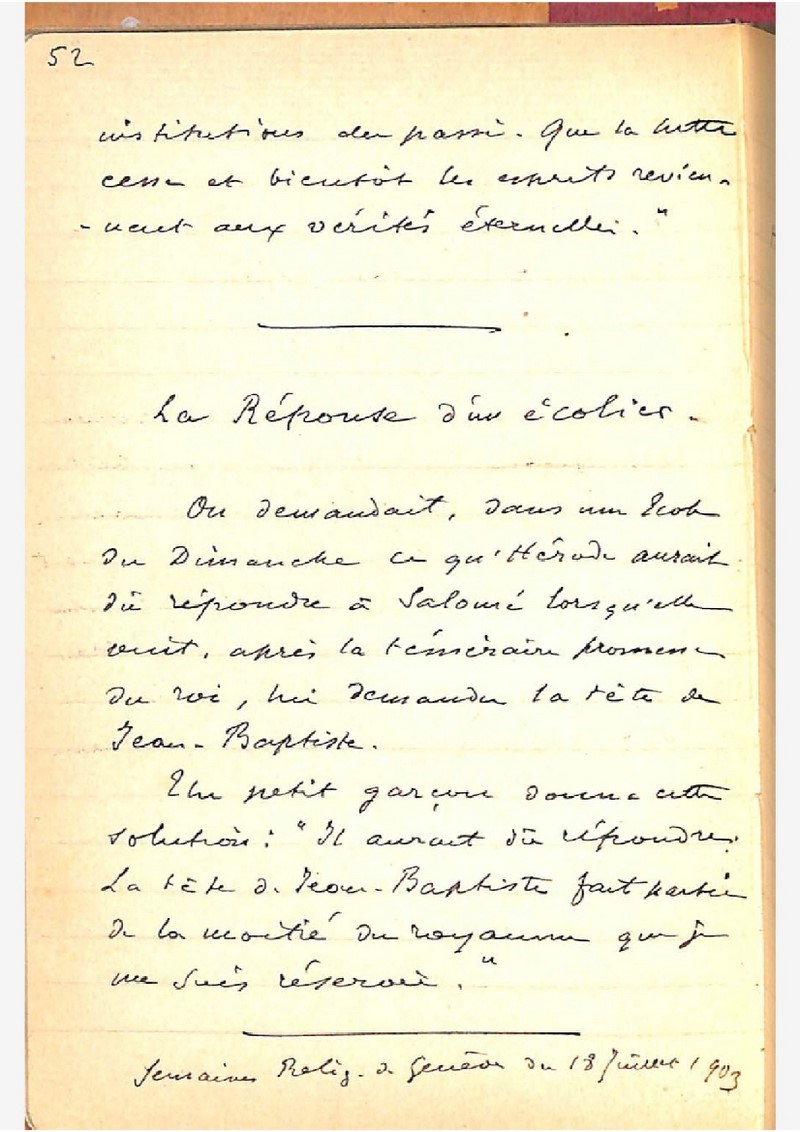 52
institutions du passé. Que la lutte
cesse et bientôt les esprits revien-
-nent aux vérités éternelles."
La Réponse d'un écolier.
On demandait, dans une Ecole
du Dimanche ce qu'Hérode aurait
dû répondre à Salomé lorsqu'elle
vint, après la téméraire promesse
du roi, lui demander la tête de
Jean-Baptiste.
Un petit garçon donna cette
solution: "Il aurait dû répondre:
La tête de Jean-Baptiste fait partie
de la moitié du royaume que je
me suis réservée."
Semaines Relig. de Genève du 18 Juillet 1903